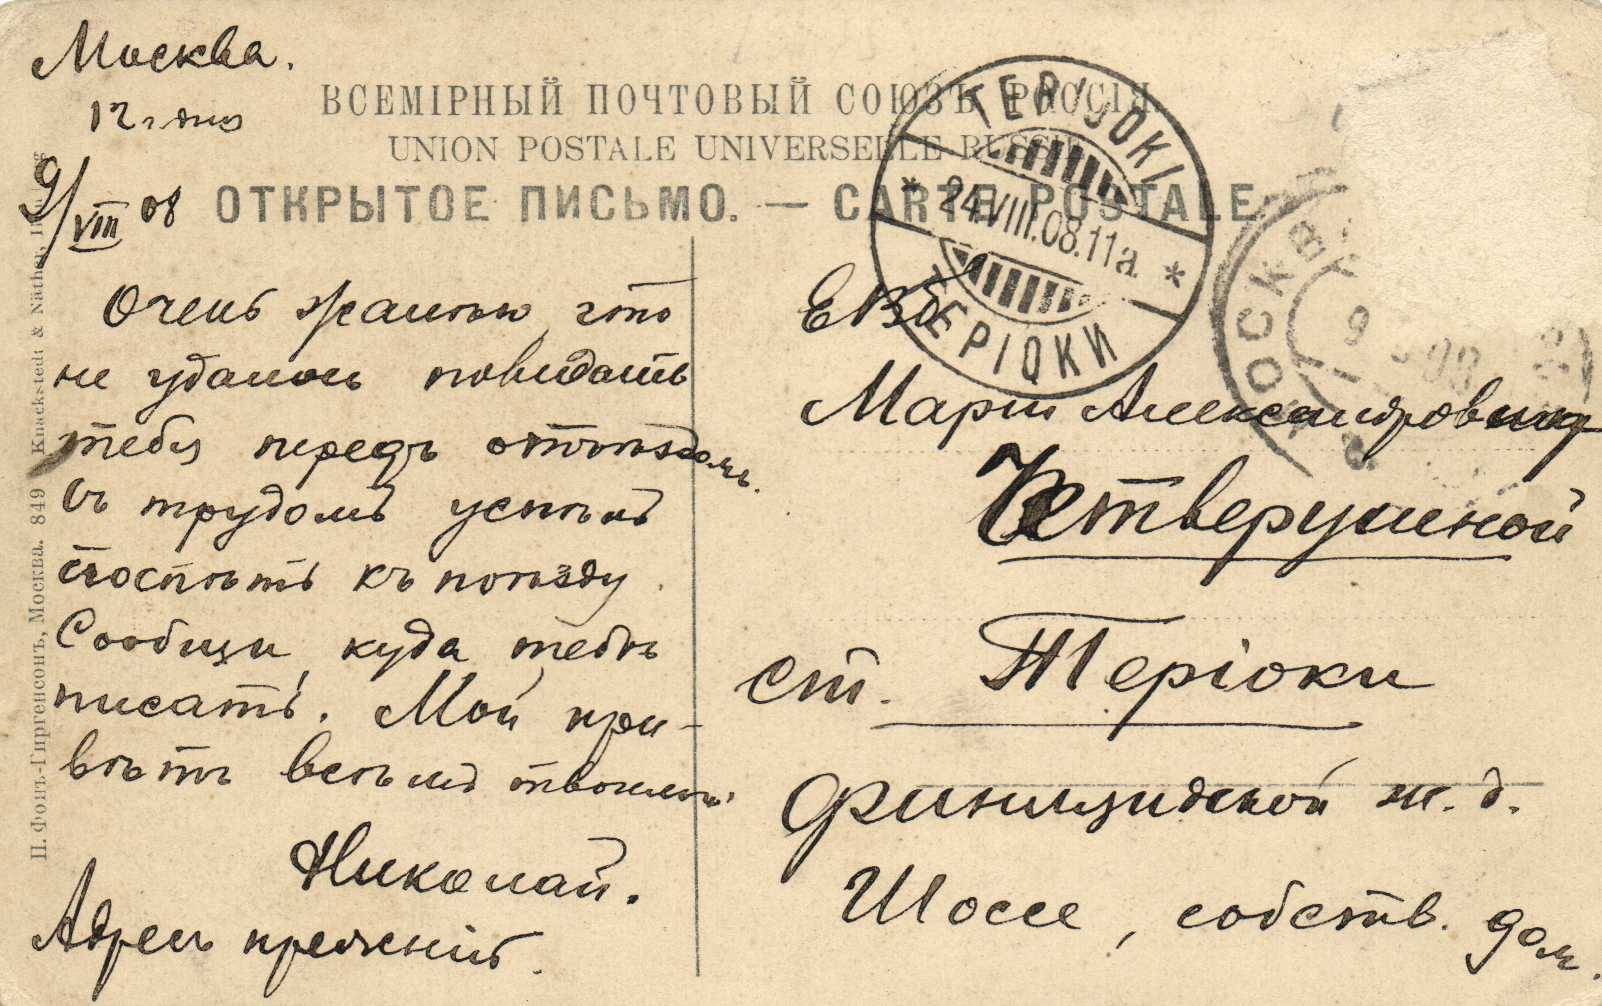 Москва.
12 ч дня
9/VIII 08
ВСЕМІРНЫЙ ПОЧТОВЫЙ СОЮЗЪ РОССІЯ
UNION POSTALE UNIVERSELLE RUSSIE
ОТКРЫТОЕ ПИСЬМО. — CARTE POSTALE
Очень жалѣю, что
не удалось повидать
тебя передъ отъѣздомъ.
Съ трудомъ успѣлъ
поспѣть къ поѣзду.
Сообщи, куда тебѣ
писать. Мой при-
вѣтъ всѣмъ твоимъ.
Николай.
Адресъ прежній.
TERIJOKI
24.VIII.08.11a.
ТЕРІОКИ
МОСКВА
9 08
ЕВБ
Маріи Александровнѣ
Четверушиной
ст. Теріоки
Финляндской ж. д.
Шоссе, собств. дом.
П. Фонъ-Гиргенсонъ, Москва. 849 Knackstedt & Näther, Hamburg